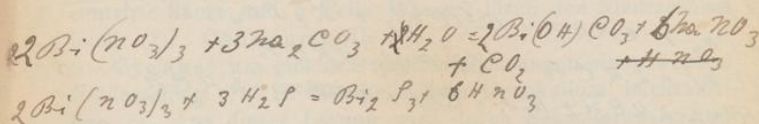 2 Bi(NO3)3 + 3 Na2CO3 + H2O = 2 Bi(OH)CO3 + 6 NaNO3
+ CO2 + HNO3
2 Bi(NO3)3 + 3 H2S = Bi2S3 + 6 HNO3